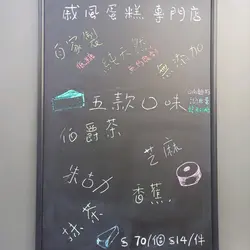 戚風蛋糕專門店
自家製
低糖
純天然
無添加
五款口味
伯爵茶
芝麻
朱古力
香蕉
抹茶
$70/個 $14/件